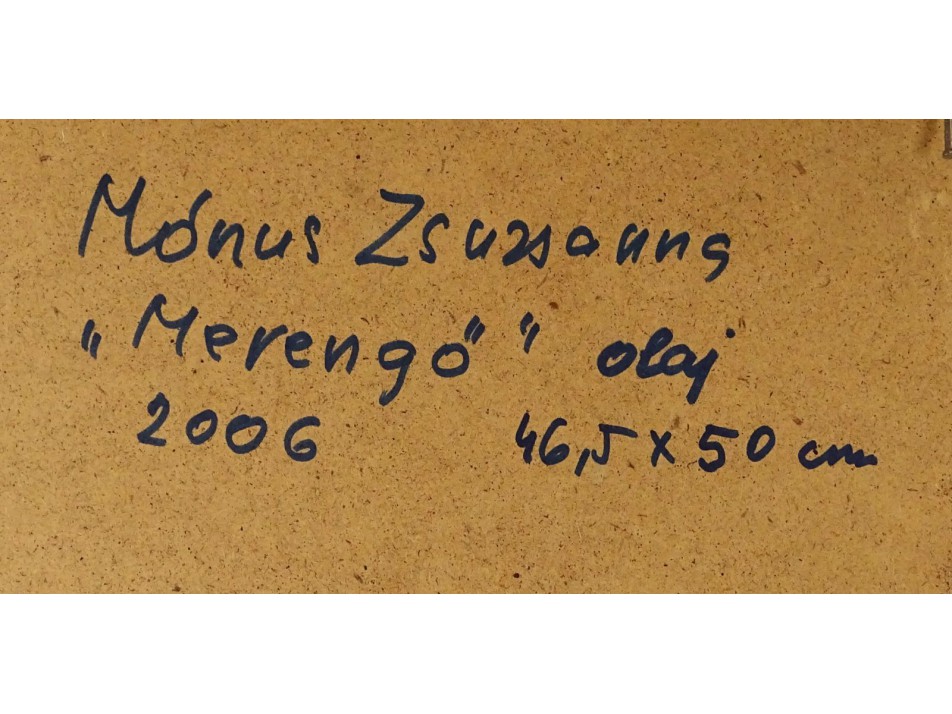 Mónus Zsuzsanna
„Merengő” olaj
2006 46,5 x 50 cm